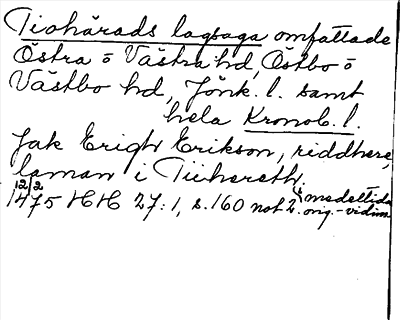 Tiohärads lagsaga omfattade
Östra o Västra hd, Östbo o
Västbo hd, Jönk. l. samt
hela Kronob. l.
Jak Erigh Erikson, riddhere,
laman i Tiihereth.
12/2
1475 HH 27:1, s. 160 not 2. medeltida
orig.-vidim.